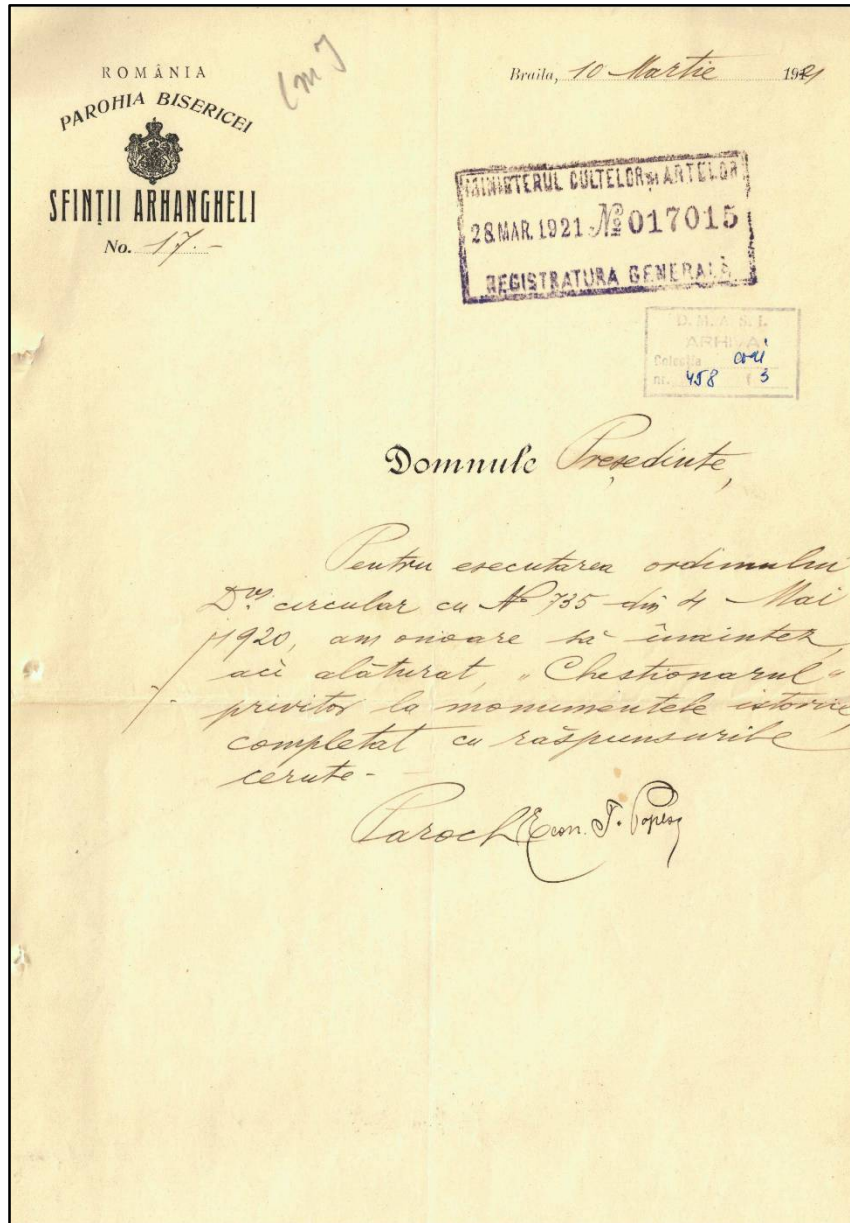 ROMÂNIA
PAROHIA BISERICEI
SFINȚII ARHANGHELI
No. 17.-
(m J
Braila, 10 Martie 1921
MINISTERUL CULTELOR și ARTELOR
28 MAR. 1921 No 017015
REGISTRATURA GENERALĂ
D. M. A. S. I.
ARHIVA
Colecția
nr. 458 3
Domnule Președinte,
Pentru executarea ordinului
Dvs circular cu No 735 din 4 Mai
1920, am onoare să înaintez,
aci alăturat, "Chestionarul"
privitor la monumentele istorice,
completat cu răspunsurile
cerute-
Paroch Econ. I. Popescu